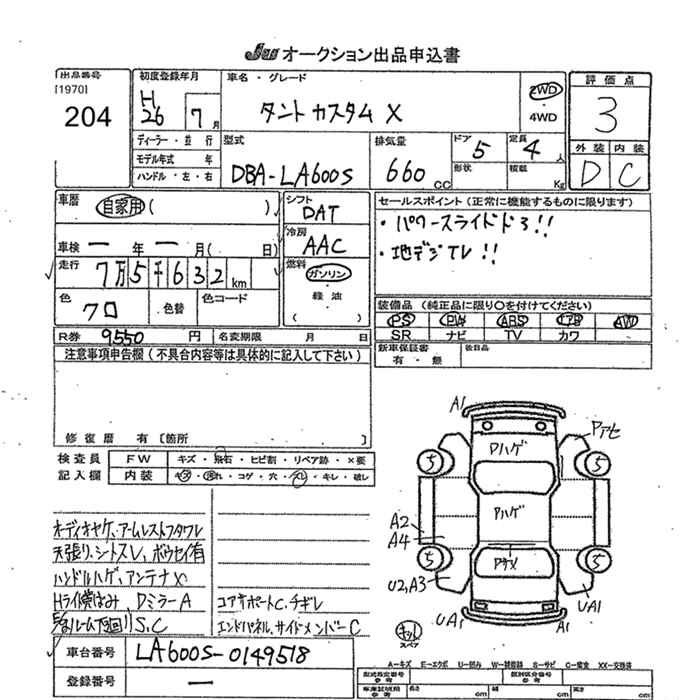 JU オークション出品申込書
出品番号
[1970]
204
初度登録年月
H
26 7 月
ディーラー ・ 並 行
モデル年式 年
ハンドル ・ 左 ・ 右
車名 ・ グレード
タント カスタム X
2WD
4WD
評 価 点
3
外 装 内 装
D C
型式
DBA-LA600S
排気量
660 CC
ドア
5
定員
4 人
形状
積載
Kg
車歴
自家用 ( )
車検 ー 年 ー 月 ( 日)
走行
7万5千632 km
色
クロ
色替
色コード
シフト
DAT
冷房
AAC
燃料
ガソリン
軽 油
( )
セールスポイント (正常に機能するものに限ります)
・パワースライドドア!!
・地デジTV!!
装備品 (純正品に限り〇を付けてください)
PS PW ABS エアB AW
SR ナビ TV カワ
R券 9550 円
名変期限 月 日
新車保証書
有 ・ 無
後日品
注意事項申告欄 (不具合内容等は具体的に記入して下さい)
修 復 歴 有 [箇所 ]
検 査 員
記 入 欄
FW キズ ・ 飛石 ・ ヒビ割 ・ リペア跡 ・ ×要
内装 キズ ・ 汚れ ・ コゲ ・ 穴 ・ スレ ・ キレ ・ 破レ
オーディオヤケ、アームレストフタワレ
天張リ、シートスレ、ボウセイ有
ハンドルハゲ、アンテナ×
Hライト黄ばみ、DミラーA
ルーム下廻リS.C
コアサポートC、チギレ
エンドパネル、サイドメンバーC
A1
Pハゲ
Pアセ
5 5
Pハゲ
A2
A4
5 5
U2,A3
UA1
UA1
A1
キット
スペア
車台番号 LA600S-0149518
登録番号 ー
A−キズ E−エクボ U−凹み W−補修跡 S−サビ C−腐食 XX−交換済
型式指定番号
参考
類別区分番号
参考
長さ cm
cm
cm